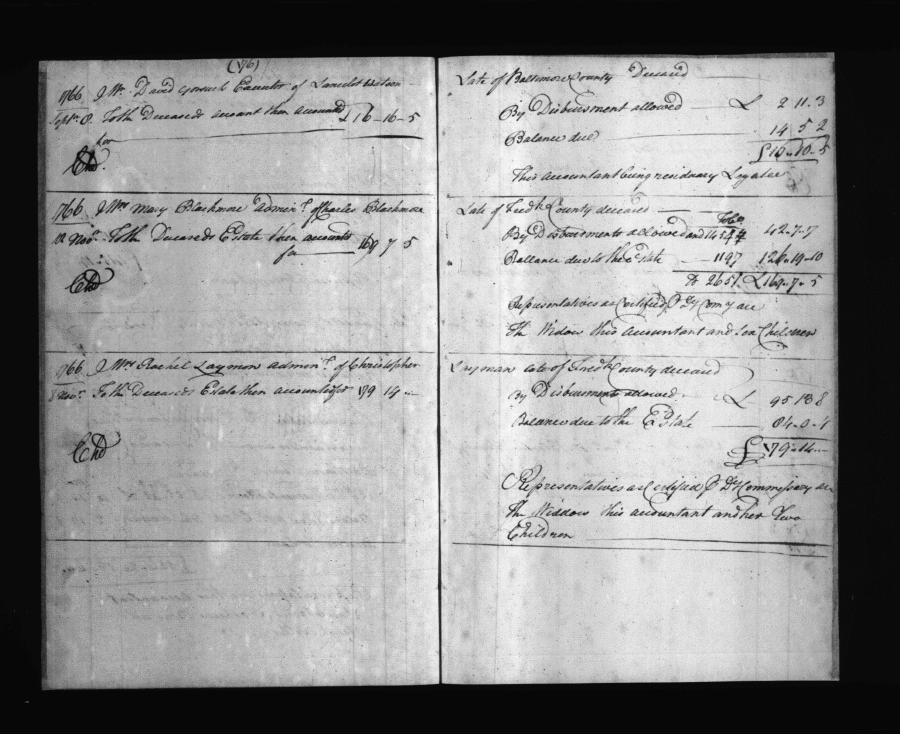 (176)
1766 Mr. David Executor of Lancelot
Septr. 8. To the Deceaseds account then accounted
for £16-16-5
Chd.
1766 Mrs Mary Blackmore Adminx. of Charles Blackmore
12 Novr. To the Deceaseds Estate then accounted
for 169 7 5
Chd
1766 Mrs Rachel Layman Adminx. of Christopher
Novr. To the Deceaseds Estate then accounted for 179 14 -
Chd
Late of Baltimore County Deceased
By Disbursement allowed £ 2 11.3
Balance due 14 5 2
£16-16-5
This Accountant being residuary Legatee
Late of Fredk County deceased
Toba
By Disbursements allowed and 1454 42-7-7
Ballance due to the Estate 1197 126-19-10
2651. £169-7-5
Representatives as Certified Dy Comy are
The Widow this Accountant and Children
Layman late of Fredk County deceased
By Disbursements allowed £ 95 13 8
Balance due to the Estate 84-0-4
£179-14-
Representatives as Certified Dy Commissary are
The Widdow this accountant and her Two
Children